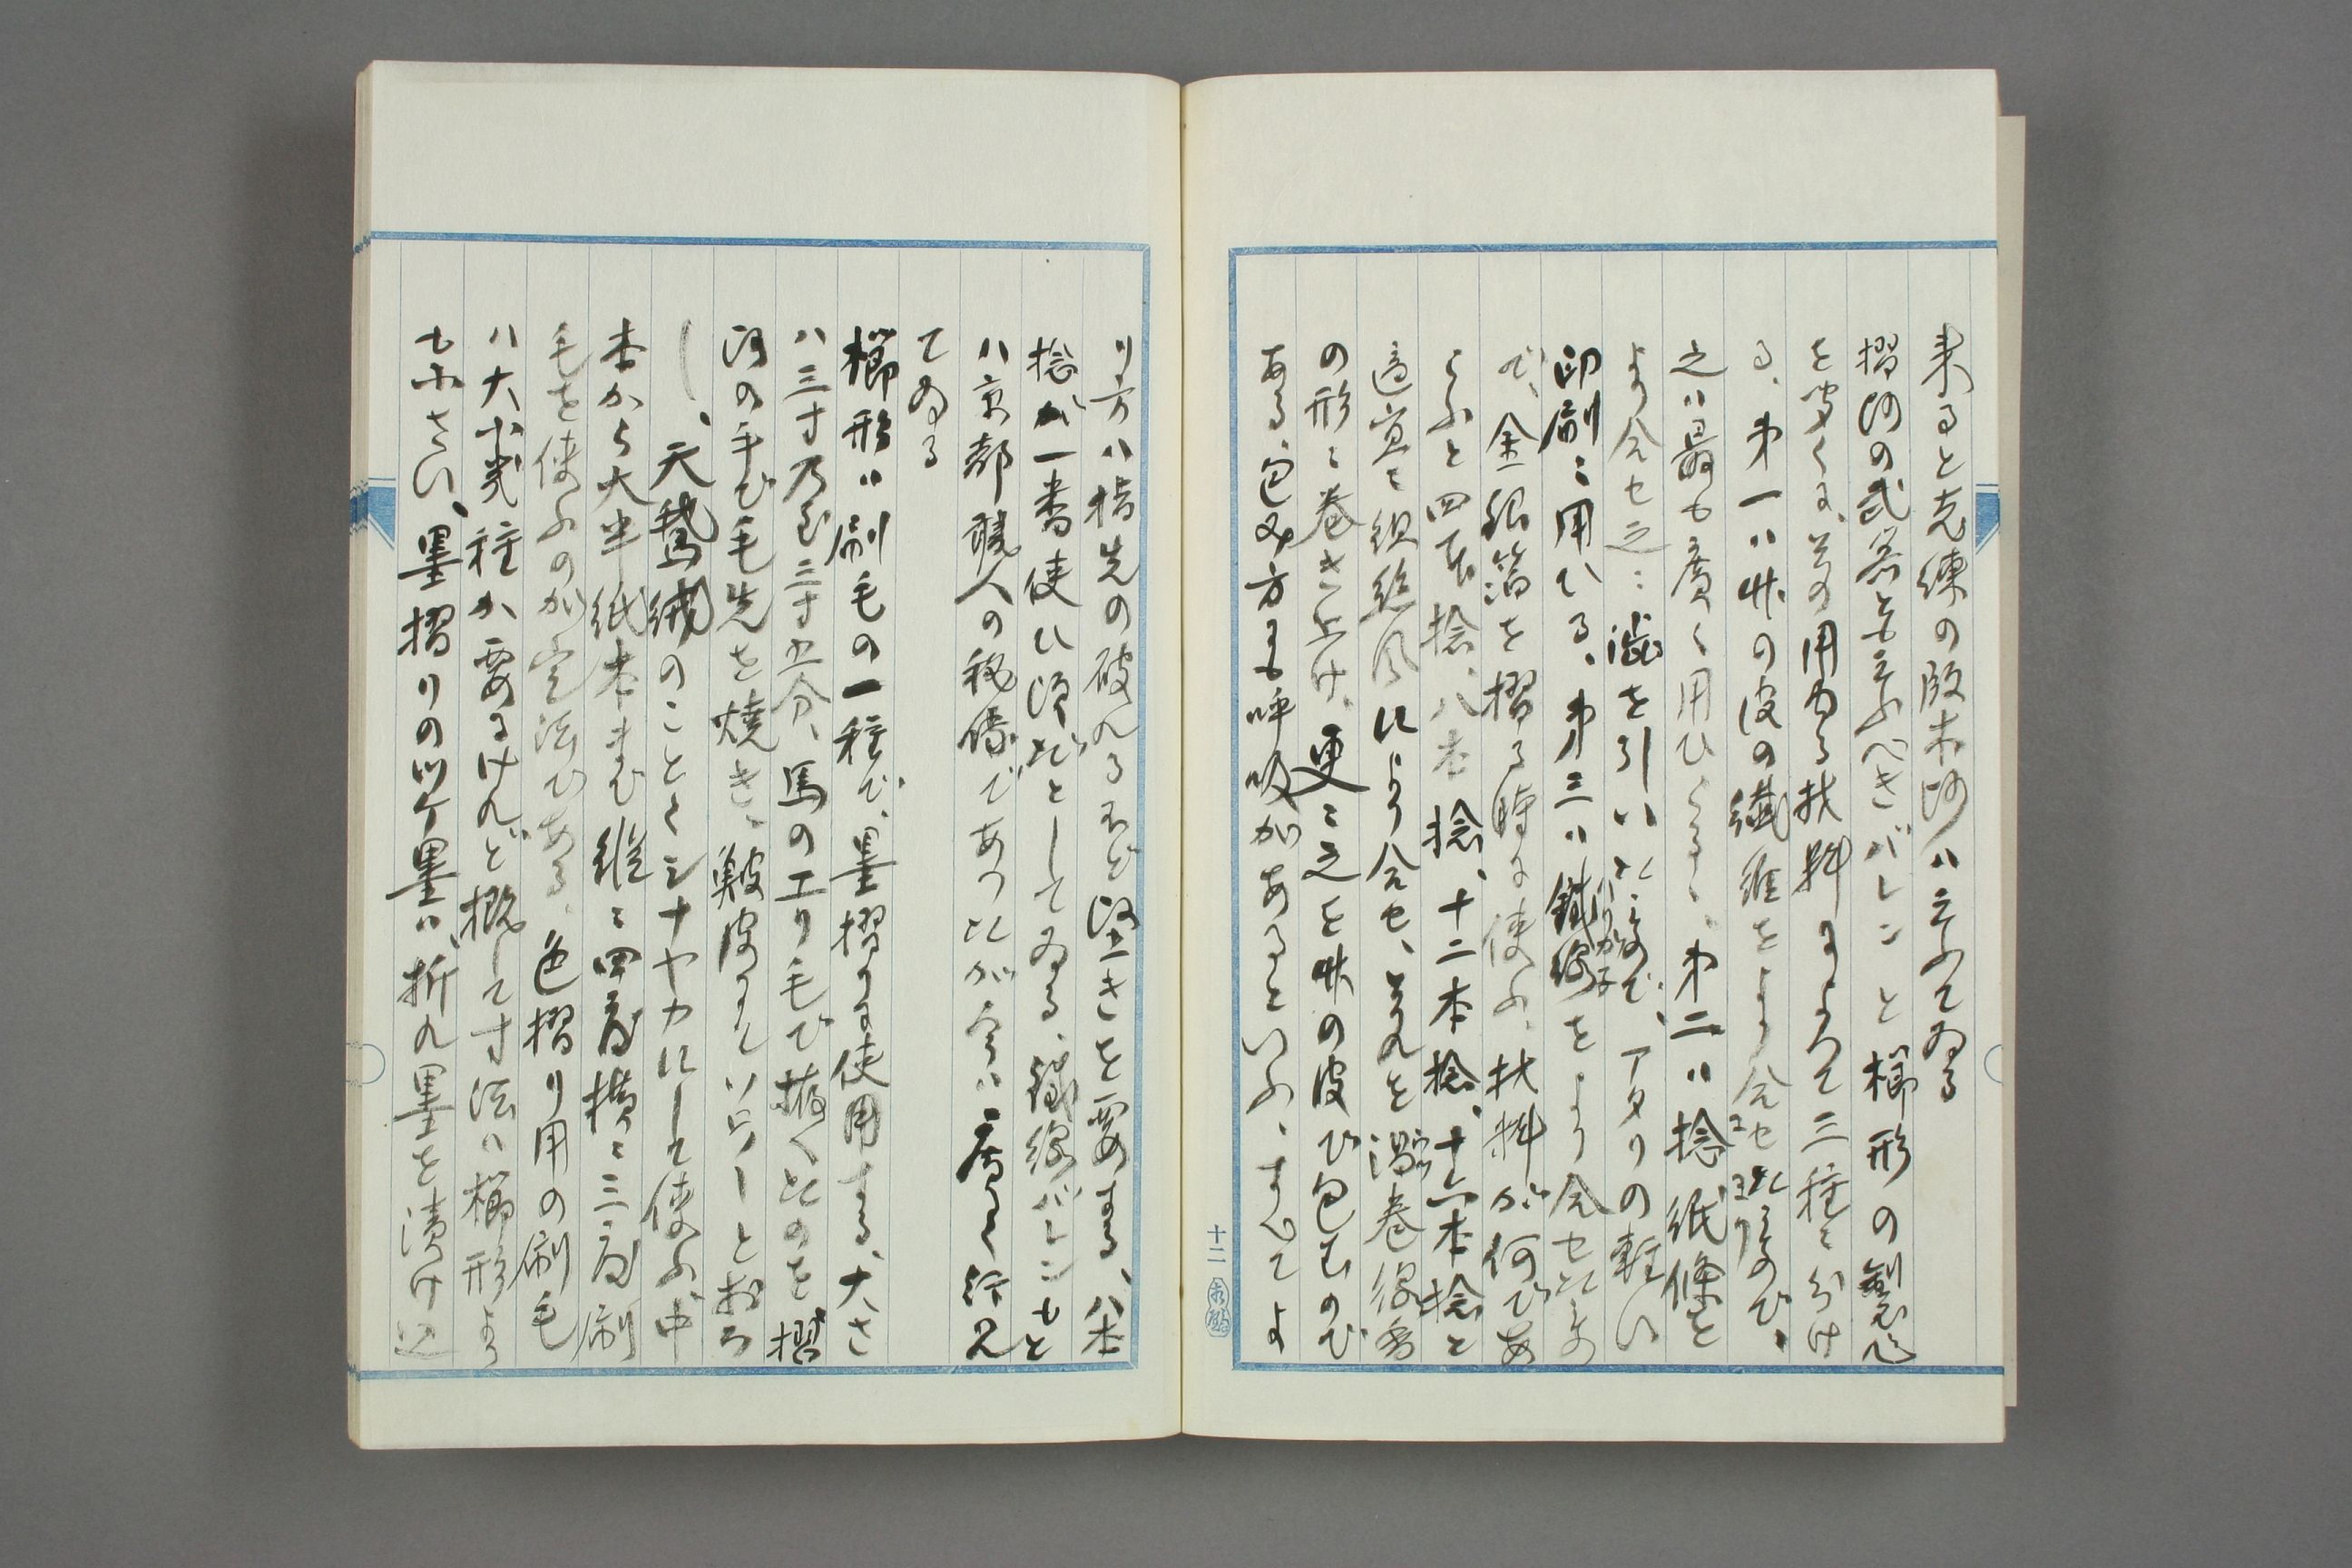 来ると老練の版木師ハ云ふてゐる
摺師の武器とも云ふべきバレンと櫛形の製シ
を聞くに、其の用ゐる材料によつて三種ニ分け
る、第一ハ竹の皮の繊維をより合セた(ヨリ)もので、
之ハ最も広く用ひらる、第二ハ捻紙條を
より合セ之ニ澁を引いたもので、アタリの軽い
印刷ニ用ひる、第三ハ鉄線(ハリガネ)をより合セたもの
で、金銀箔を摺る時に使ふ、材料が何であ
らふと四本捻、八本捻、十二本捻、十六本捻と
適宜に組紐風により合セ、それを渦巻線香
の形ニ巻き上け、更ニ之を竹の皮で包むので
ある、包み方にも呼吸があるといふ、すべてよ
十二
り方ハ指先の破れるほど堅きを要する、八本
捻が一番使ひ頃だとしてゐる、鉄線バレンもと
ハ京都職人の秘伝であつたが今ハ広く行ハれ
てゐる
櫛形ハ刷毛の一種で、墨摺りに使用する、大さ
ハ三寸乃至三寸五分、馬のエリ毛で描くたのを摺
師の手で毛先を焼き、鮫皮すてソローとおろ
し、天鵞絨のことくシナヤカにして使ふ、中
本から大半紙本まで縦ニ四度横ニ三度刷
毛を使ふのが定法である、色摺り用の刷毛
ハ大小数種か要るけれど概して寸法ハ櫛形より
も小さい、墨摺りのツケ墨ハ、折れ墨を漬け込